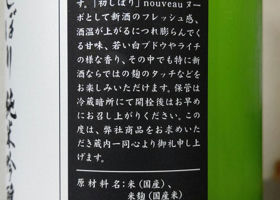 す。「初しぼり」nouveauヌー
ボとして新酒のフレッシュ感、
酒温が上がるにつれ膨らんでく
る甘味、若い白ブドウやライチ
の様な香り、その中でも特に新
酒ならではの麹のタッチなどを
お楽しみいただけます。保管は
冷蔵暗所にて開栓後はお早め
にお召し上がりください。この
度は、弊社商品をお求めいた
だき蔵内一同心より御礼申し上
げます。
原材料名：米（国産）、
米麹（国産米）
しぼり 純米吟醸